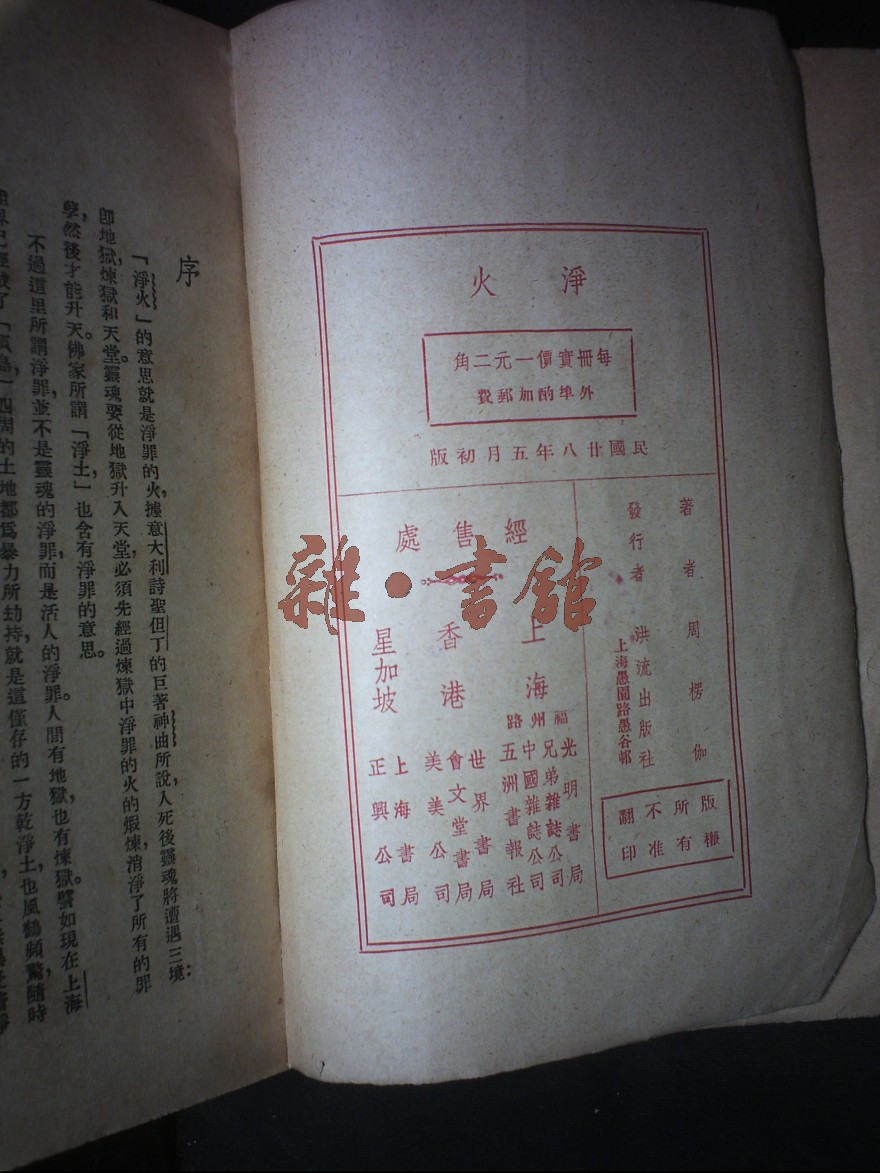 淨火
每冊實價一元二角
外埠酌加郵費
民國廿八年五月初版
著者 周楞伽
發行者 洪流出版社
上海愚園路愚谷邨
版權所有
不准翻印
經售處
上海
福州路
光明書局
兄弟雜誌公司
中國雜誌公司
五洲書報社
香港
世界書局
會文堂書局
美美公司
星加坡
上海書局
正興公司
雜·書館
序
「淨火」的意思就是淨罪的火，據意大利詩聖但丁的巨著神曲所說，人死後靈魂將遭遇三境：
卽地獄，煉獄和天堂。靈魂要從地獄升入天堂，必須先經過煉獄中淨罪的火的煅煉，消淨了所有的罪
孽，然後才能升天。佛家所謂「淨土」，也含有淨罪的意思。
不過這里所謂淨罪，並不是靈魂的淨罪，而是活人的淨罪。人間有地獄，也有煉獄。譬如現在上海
「孤島」四周的土地都爲暴力所劫持，就是這僅存的一方乾淨土，也風鶴頻驚，隨時